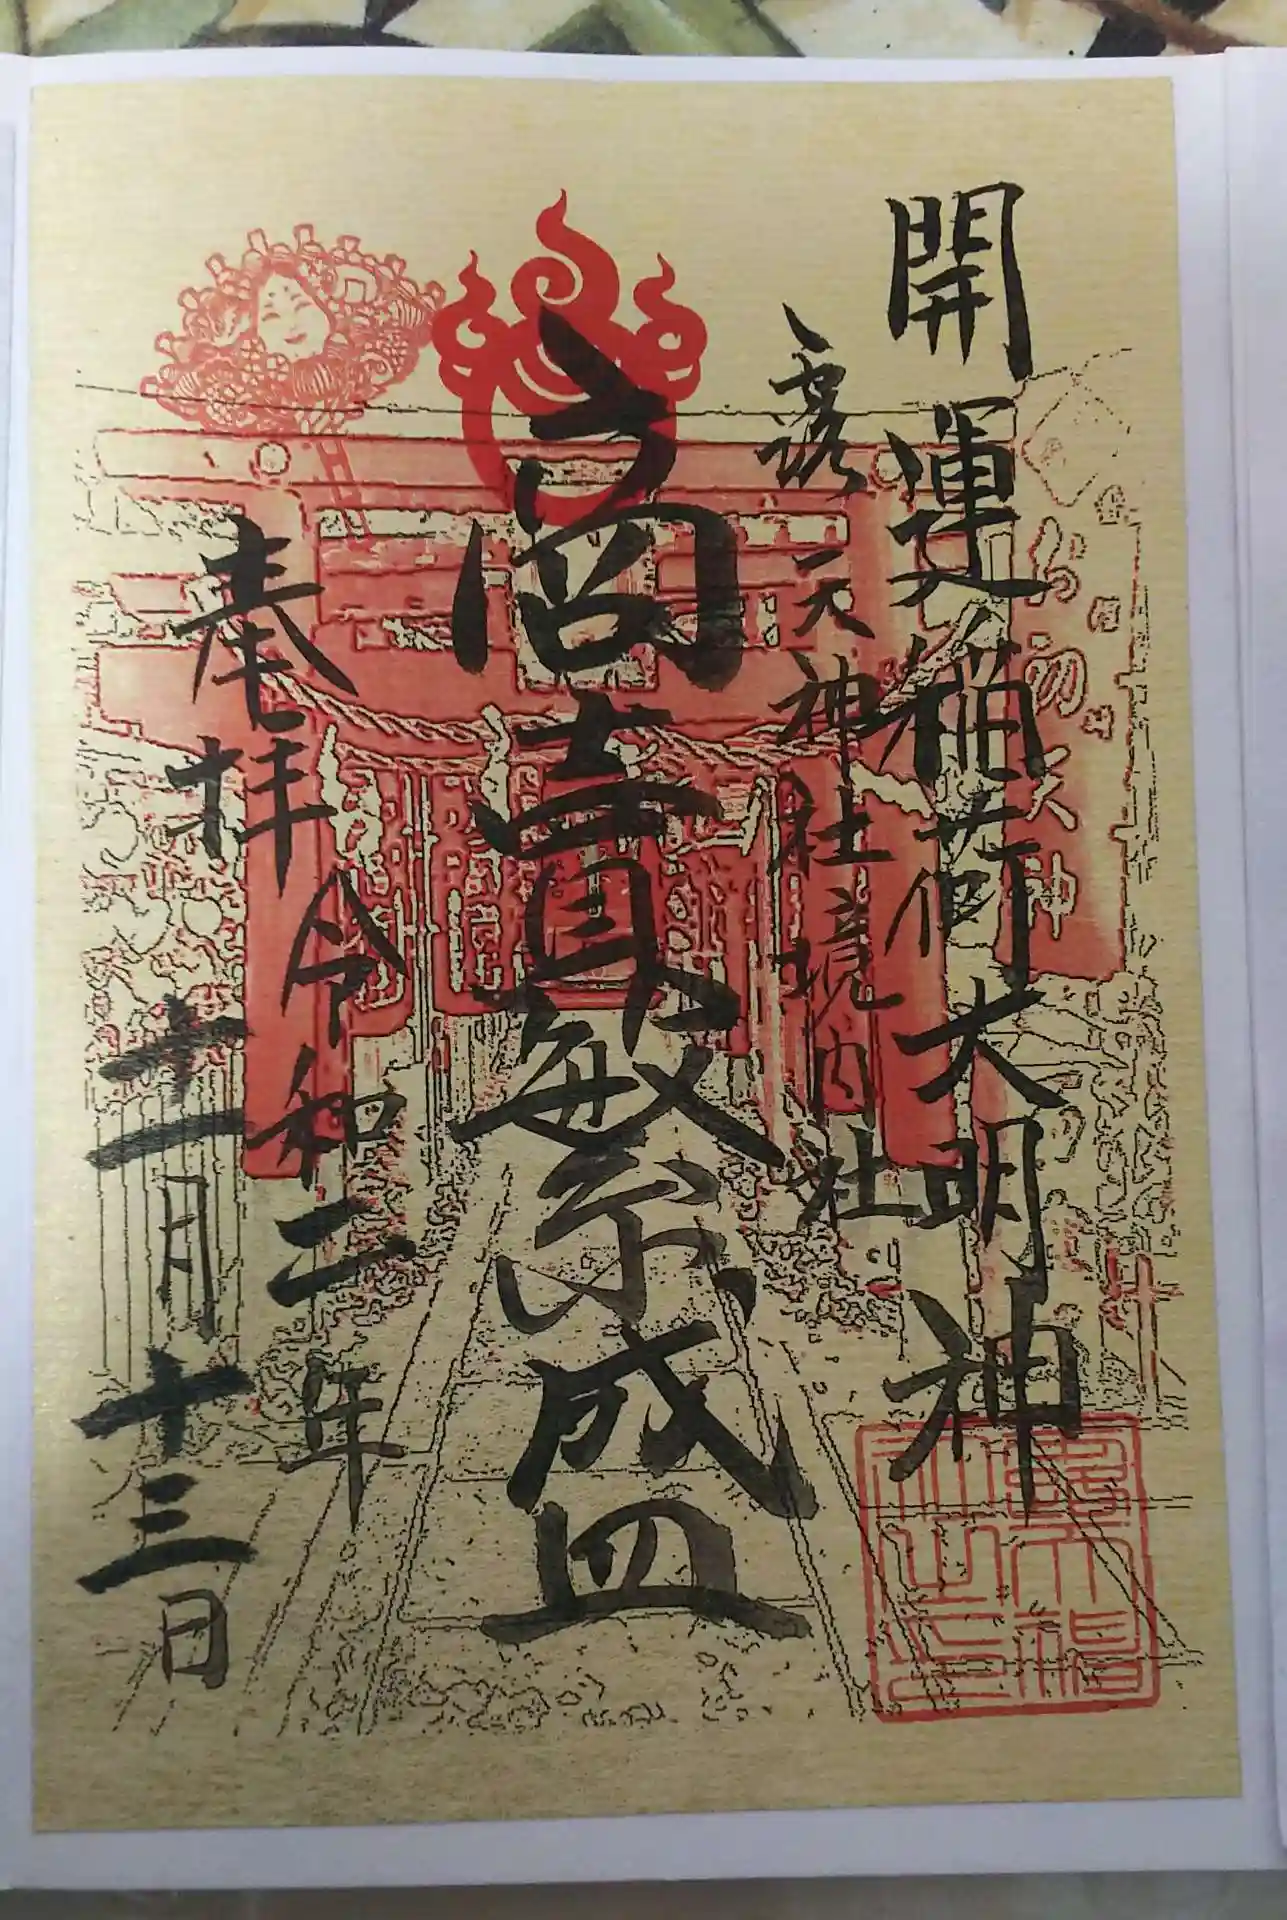 開運稲荷大明神
露天神社境内社
商売繁盛
奉拝
令和二年
十一月十三日
お初天神